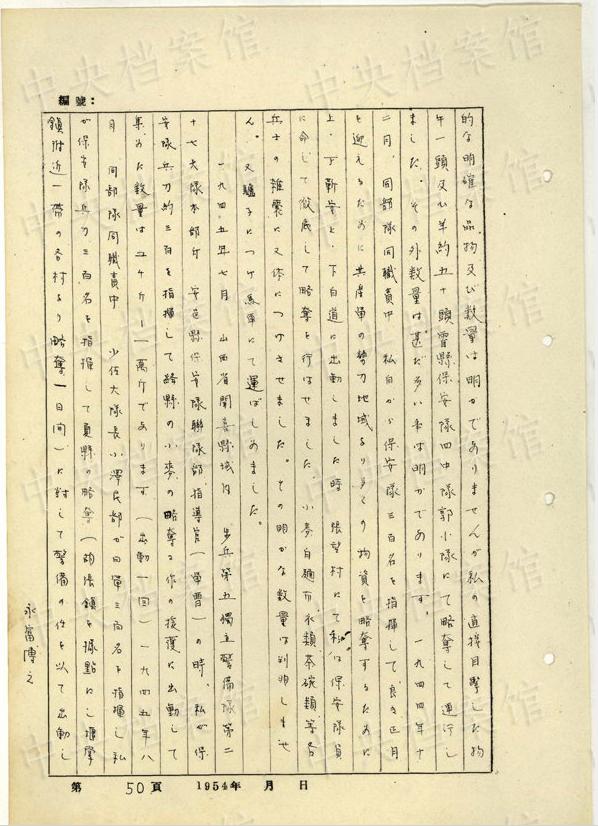 編號：
的な明確な品物及び数量は明かでありませんが私の直接目撃した物
午一頭及び羊約五十頭曾縣保安隊四中隊郭小隊にて略奪して連行し
ました。その外数量は甚だ多い事は明かであります。一九四四年十
二月、同部隊同職責中 私自から保安隊三百名を指揮して良き正月
を迎えるために共産軍の勢力地域より多くの物資を略奪するために
上、下靳安と、下白道に出動しました時 張望村にて私は保安隊員
に命じて徹底して略奪を行はせました、小麥白麺布衣類茶碗類等各
兵士の雑嚢に又体につけさせました。その明かな数量は判明しませ
ん。又驢子につけ馬車にて運ばしめました。
一九四五年七月 山西省聞喜縣城内 歩兵第五獨立警備隊第二
十七大隊本部付 安邑縣保安隊聯隊部指導官（軍曹）の時、私が保
安隊兵力約三百を指揮して縣の小麥の略奪工作の掩護に出動して
集めた数量は二千斤—一萬斤であります（出動一回）一九四五年八
月 同部隊同職責中 少佐大隊長小澤民部が日軍三百名を指揮し私
が保安隊兵力三百名を指揮して夏縣の略奪（胡張鎮を據點にし堰掌
鎮附近一帶の各村より略奪一日間）に対して警備の任を以て出動し
永富博之
第 50頁 1954年 月 日
中央档案馆